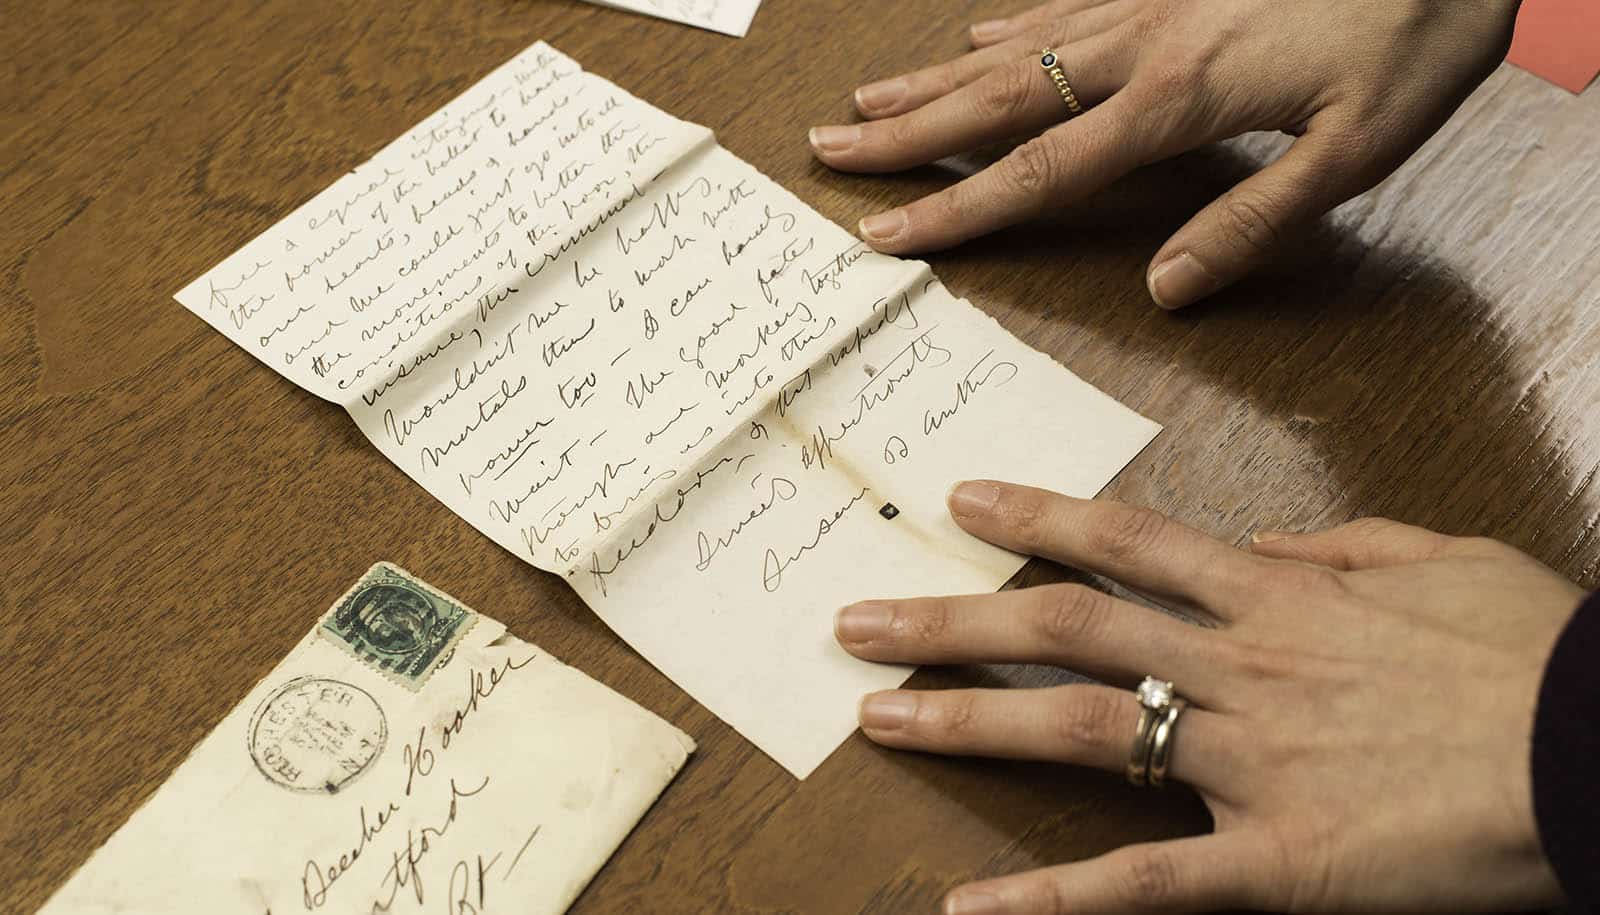 free & equal citizens – with
the power of the ballot to back
our hearts, heads & hands –
and we could just go into all
the movements to better the
conditions of the poor, the
insane, the criminal –
Wouldn't we be happy
mortals thus to work with
power too – I can hardly
wait – The good fates
though are working together
to bring us into this
freedom – & that rapidly –
Sincerely Affectionately
Susan B Anthony
ROCHESTER
N.Y.
Beecher Hooker
Hartford
Ct –